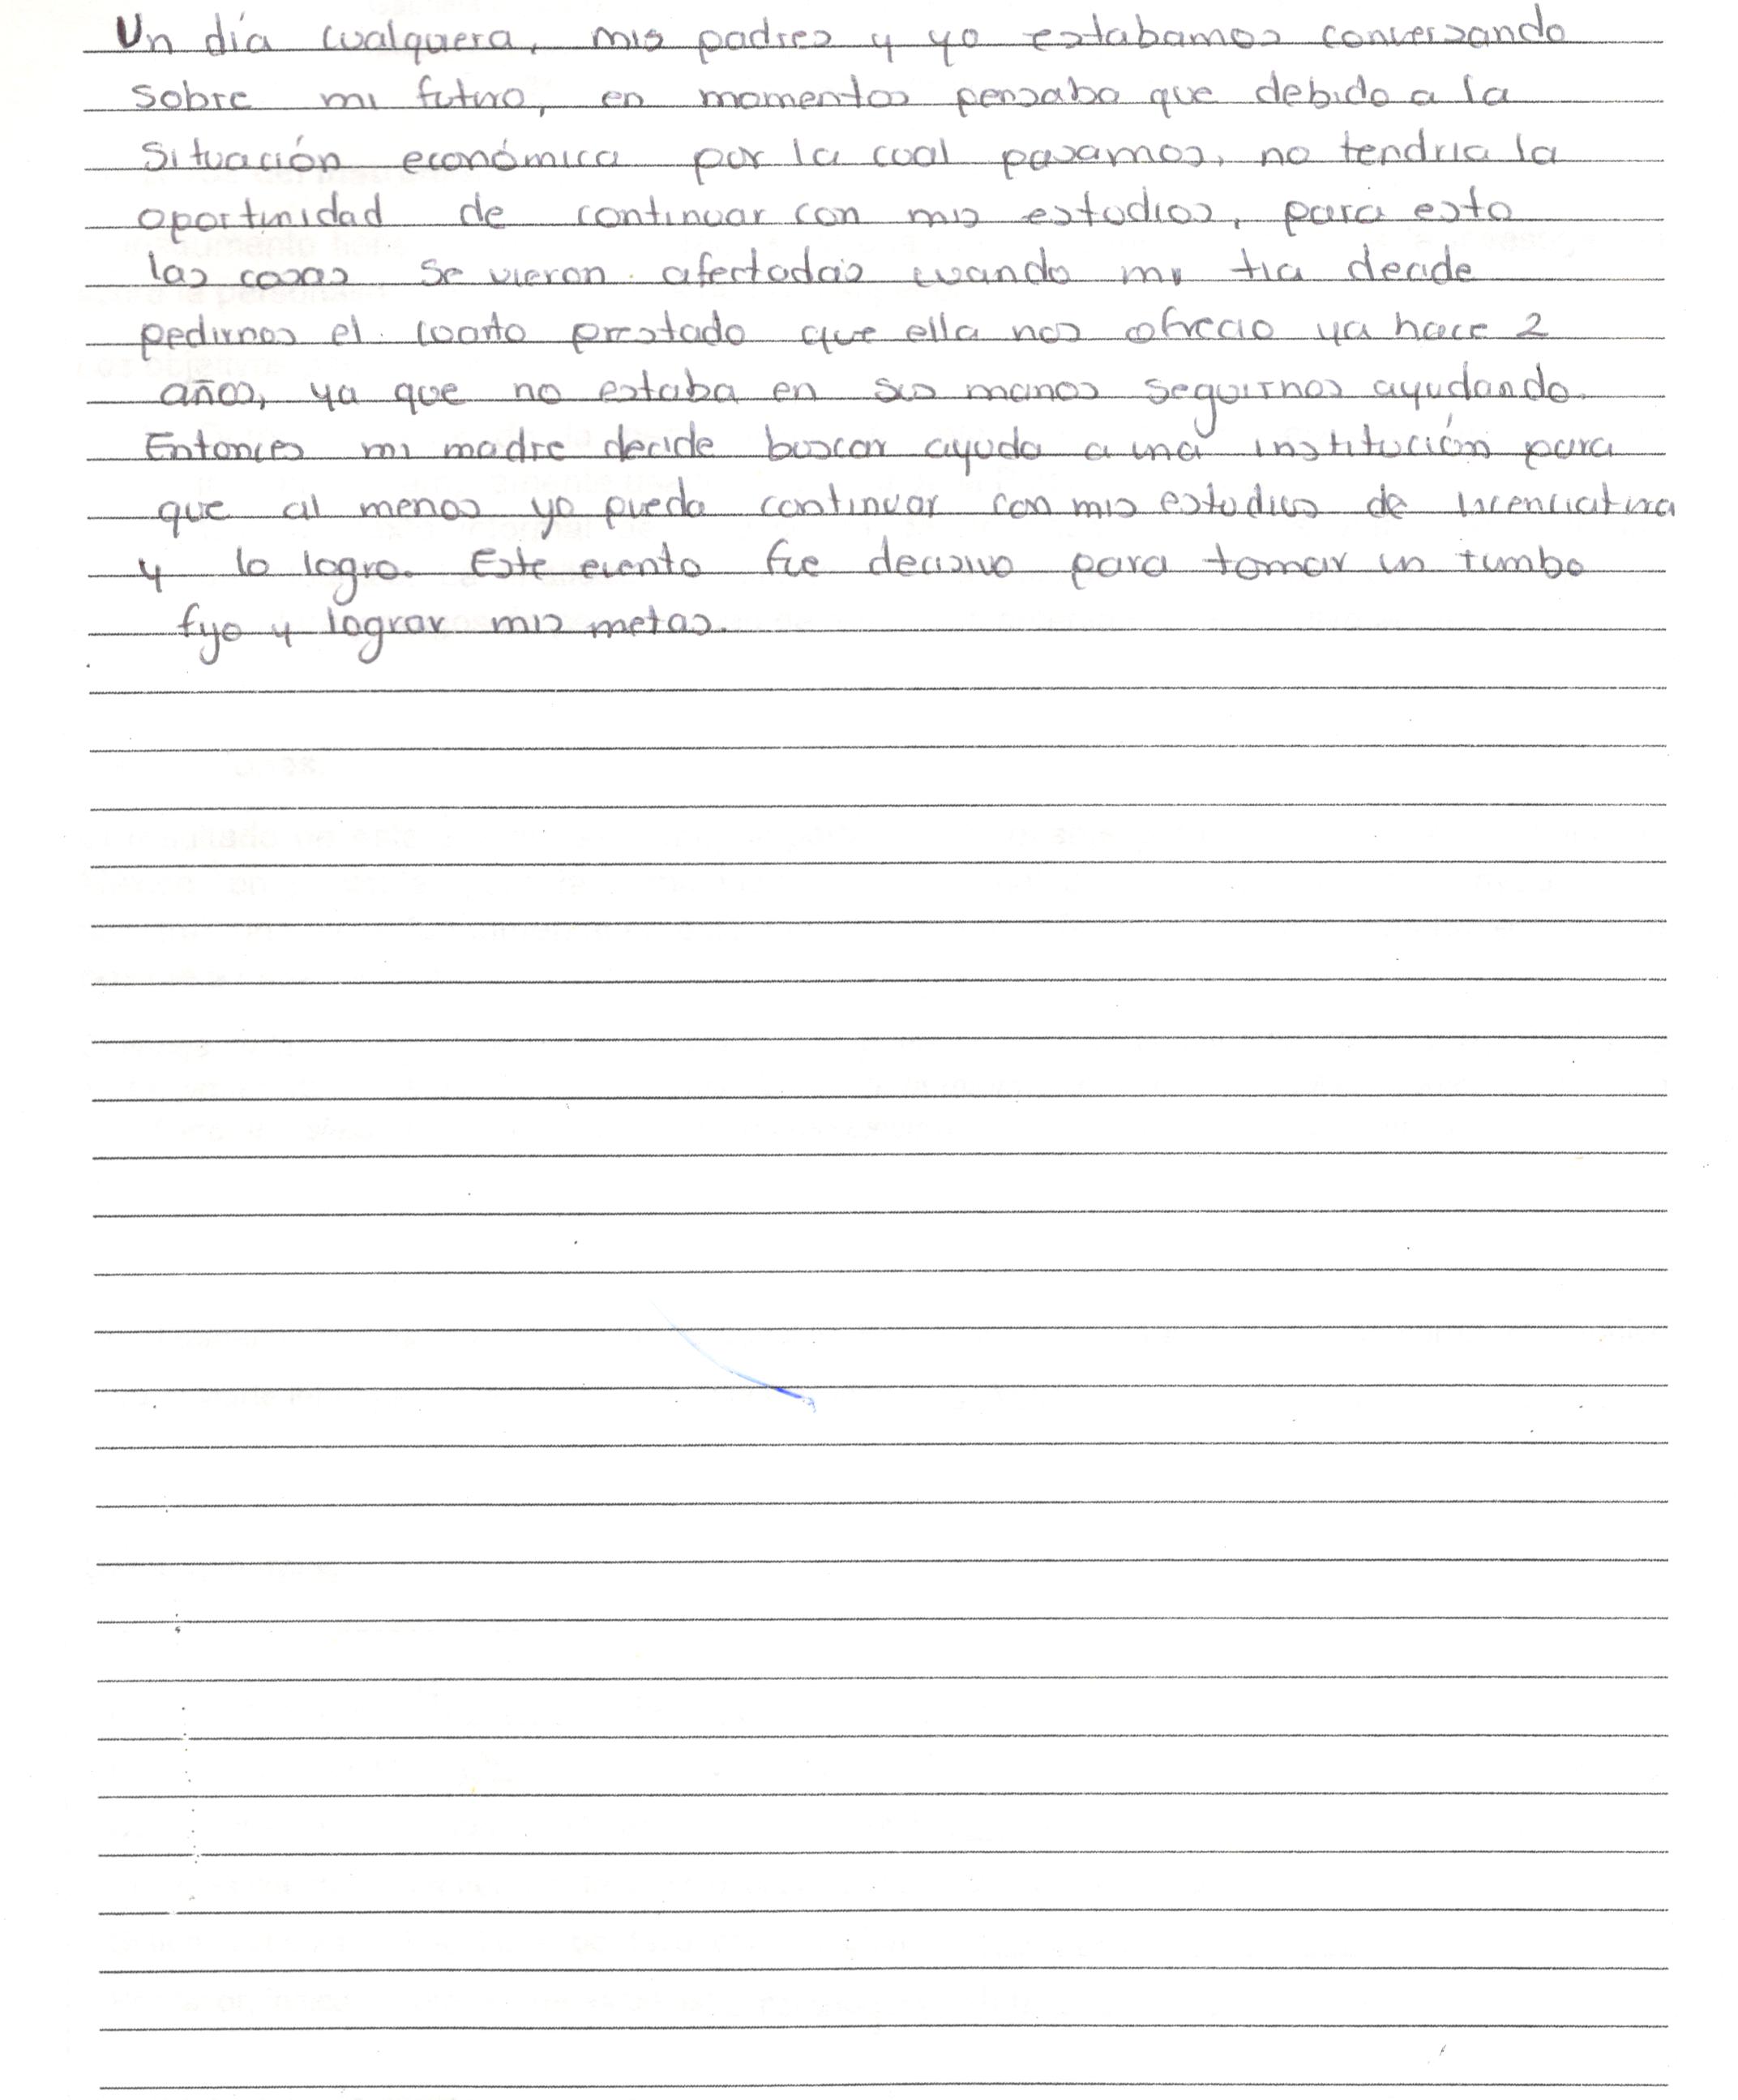 Un día cualquera, mis padres y yo estabamos conversando
sobre mi futuro, en momentos pensaba que debido a la
situación económica por la cual pasamos, no tendria la
oportunidad de continuar con mis estudios, para esto
las cosas se vieron afectadas cuando mi tia decide
pedirnos el cuarto prestado que ella nos ofrecio ya hace 2
años, ya que no estaba en sus manos seguirnos ayudando.
Entonces mi madre decide buscar ayuda a una institución para
que al menos yo pueda continuar con mis estudios de licenciatura
y lo logro. Este evento fue decisivo para tomar un tumbo
fijo y lograr mis metas.